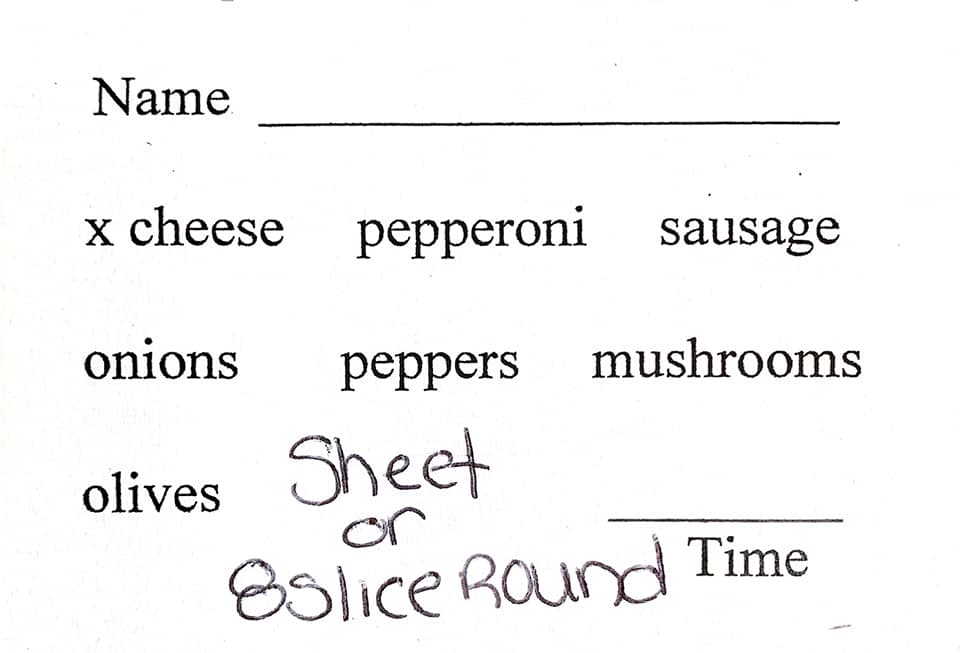 Name
x cheese pepperoni sausage
onions peppers mushrooms
olives Sheet
or
8 slice Round Time